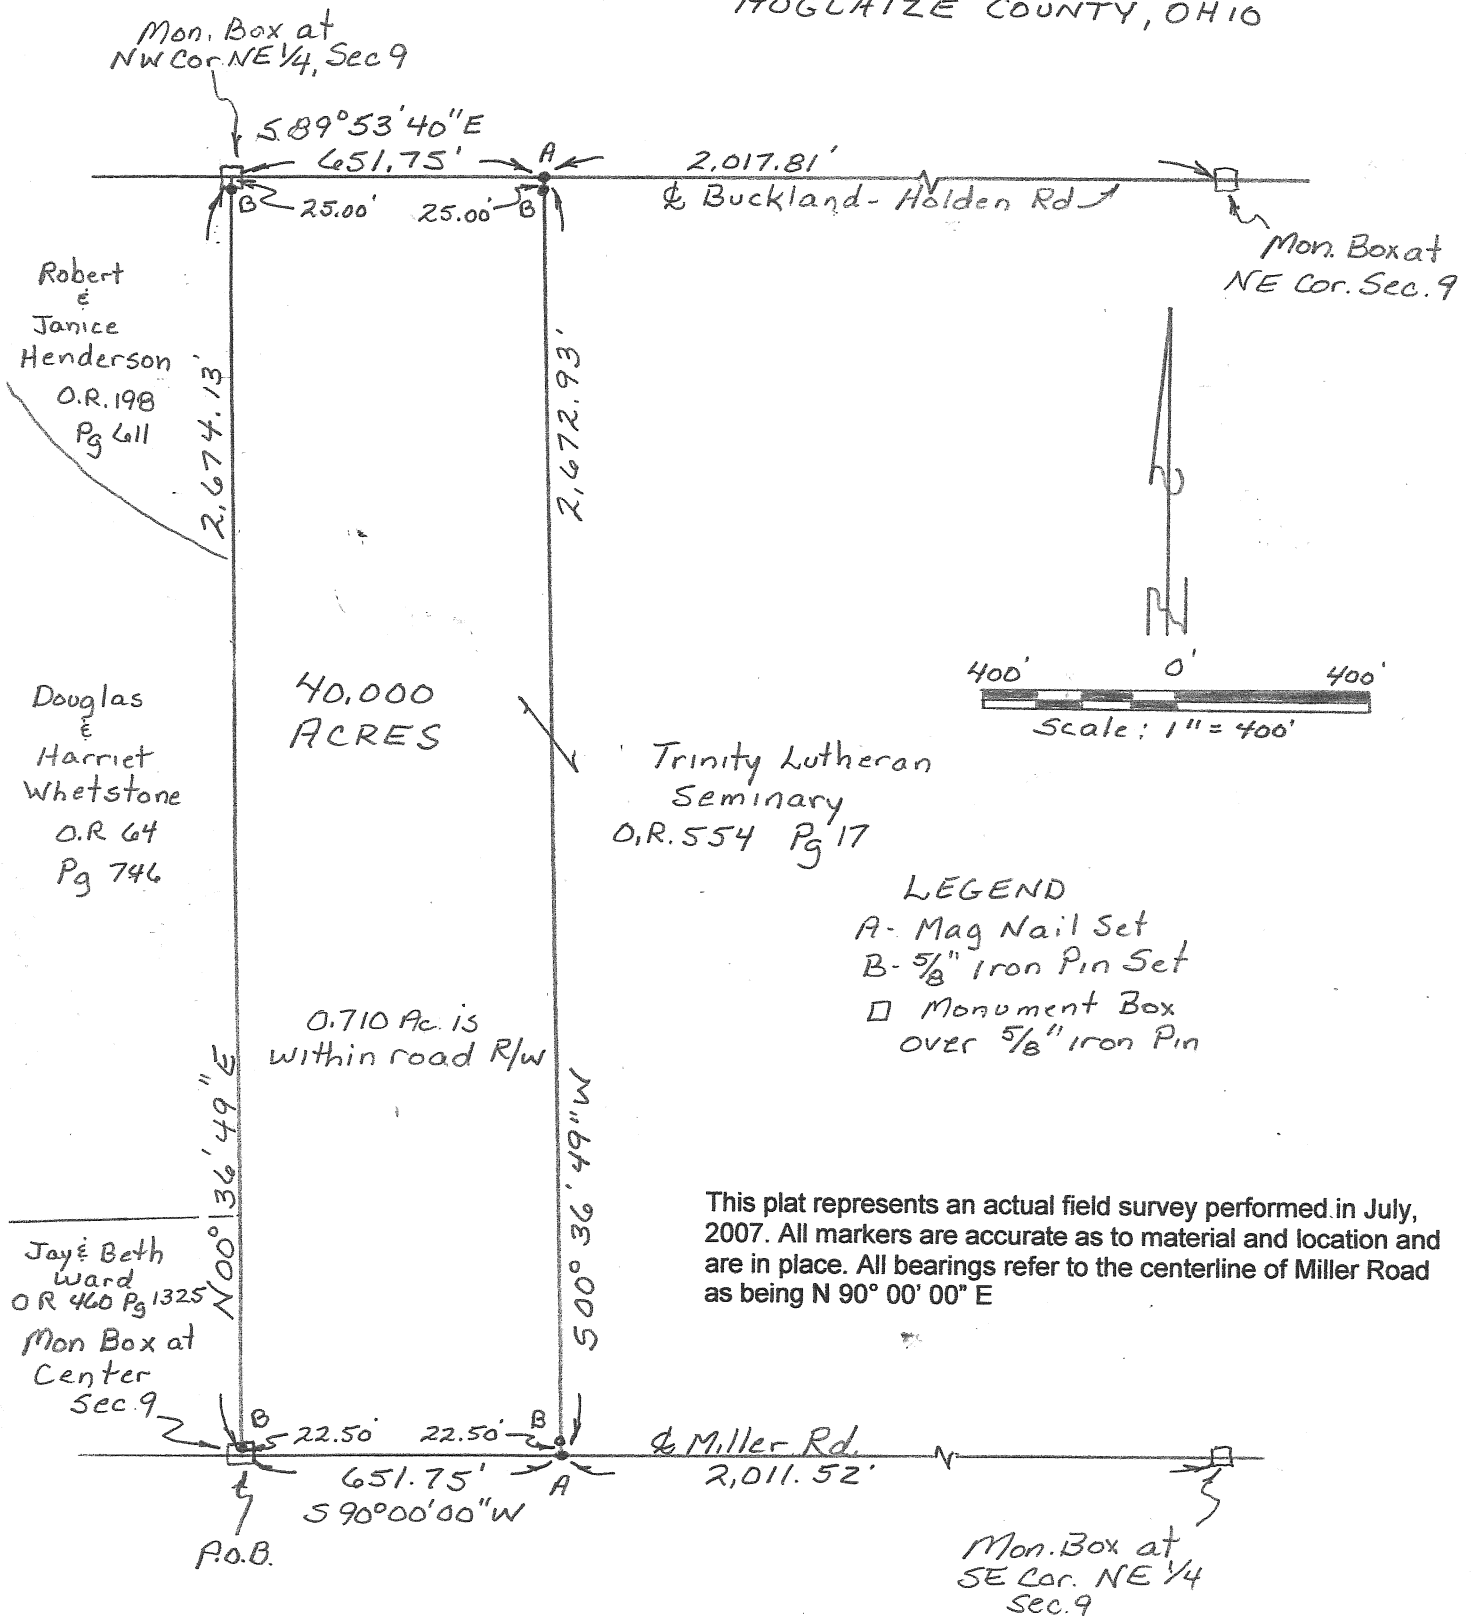 AUGLAIZE COUNTY, OHIO
Mon. Box at
NW Cor. NE 1/4, Sec 9
S 89° 53' 40" E
651.75'
A
2,017.81'
B
25.00'
25.00'
B
℄ Buckland-Holden Rd
Mon. Box at
NE Cor. Sec. 9
Robert
&
Janice
Henderson
O.R. 198
Pg 611
2,674.13'
2,672.93'
N
400'
0'
400'
Scale: 1" = 400'
Douglas
&
Harriet
Whetstone
O.R 64
Pg 746
40.000
ACRES
Trinity Lutheran
Seminary
O.R. 554 Pg 17
LEGEND
A- Mag Nail Set
B- 5/8" Iron Pin Set
□ Monument Box
over 5/8" Iron Pin
0.710 Ac. is
within road R/W
N 00° 36' 49" E
S 00° 36' 49" W
This plat represents an actual field survey performed in July,
2007. All markers are accurate as to material and location and
are in place. All bearings refer to the centerline of Miller Road
as being N 90° 00' 00" E
Jay & Beth
Ward
O R 460 Pg 1325
Mon Box at
Center
Sec. 9
B
22.50'
22.50'
B
℄ Miller Rd.
651.75'
A
2,011.52'
S 90° 00' 00" W
P.O.B.
Mon. Box at
SE Cor. NE 1/4
Sec. 9